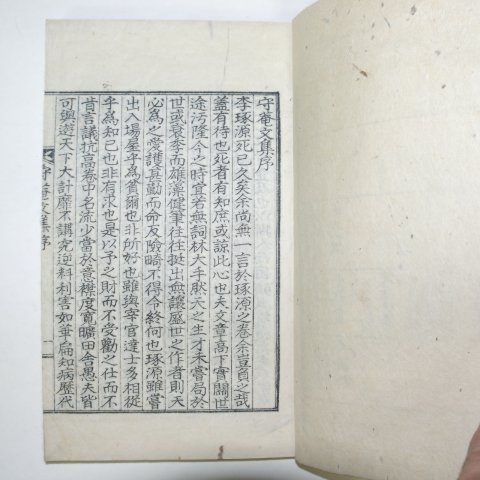 守菴文集序
李琢源死已久矣余尚無一言於琢源之卷余豈負之哉
蓋有待也死者有知庶或諒此心也夫文章高下實關世
途污隆今之時宜若無詞林大手厭天之生才未嘗局於
世或衰季而雄渾健筆往往挺出無讓盛世之作者則天
必為之愛護莫勤而命反險畸不得令終何也琢源雖嘗
出入場屋乎為貧爾也非所好也雖與宰官達士多相從
乎為知已也非有求也是以予之財而不受勸之仕而不
昔言議抗高卷中名流少當於意襟度寬曠田舍愚夫皆
可與遊天下大計靡不講究逆料利害如華扁知病歷代
守菴文集序
一